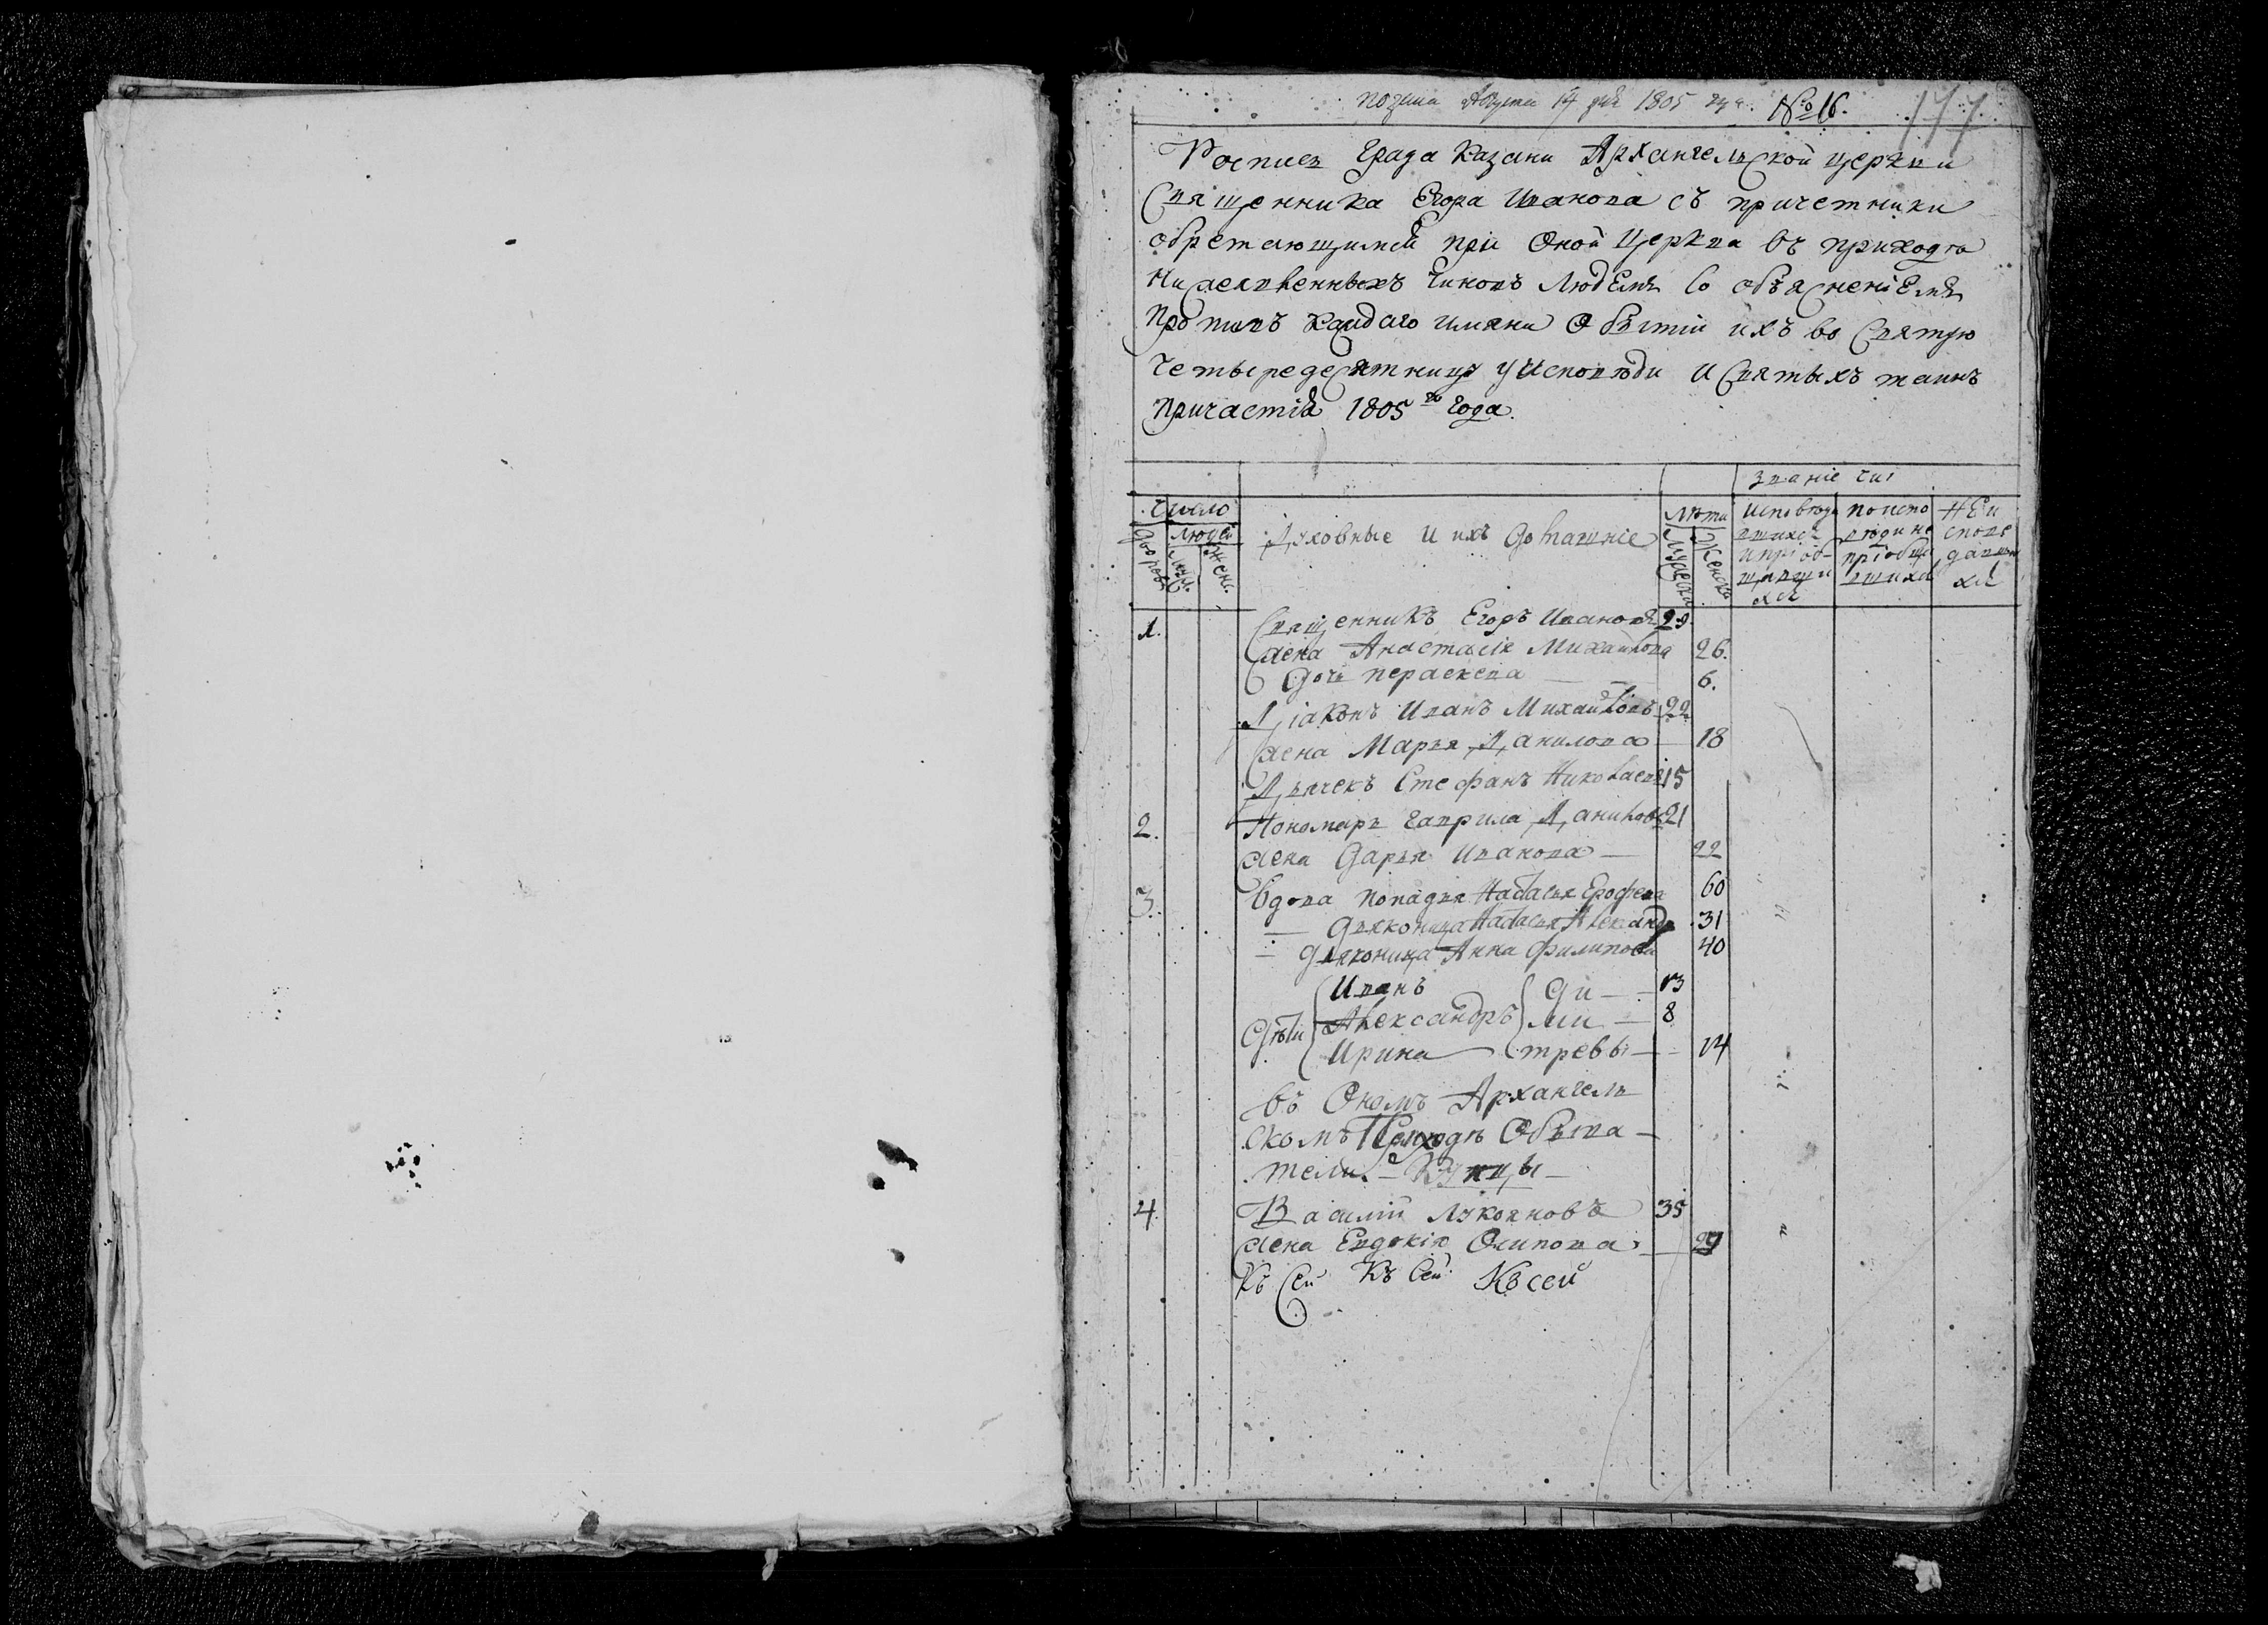 Августа 14 дня 1805 года № 16. 177.
Роспись Града Казани Архангельской церкви
Священника Егора Иванова съ причетники
обретающимся при Оной Церква въ приходѣ
нижеявленныхъ чиновъ людемъ со объясненіемъ
противъ каждаго имяни О бытіи ихъ во Святую
четыредесятницу у Исповѣди и Святыхъ таинъ
причастія 1805 го Года.
званіе чи
Число
Дворовъ
людей
муж.
женс.
Духовные и ихъ домашніе
лѣта
Мужеска
Женска
исповѣдавшихся и пріобщавшихся
по исповѣди не пріобщившихся
Не исповедавшихся
1. Священникъ Егоръ Ивановъ 29.
жена Анастасія Михайлова 26.
Дочь параскева 6.
Діаконъ Иванъ Михайловъ 22
жена Марья Данилова — 18
Дьячекъ Стефанъ Николаевъ 15
2. Пономарь Гаврила Данилов 21
жена Дарья Иванова — 22
3. Вдова попадья Наталья Ерофеева 60
— Дьяконица Наталья Александр 31
— дьяконица Анна Филипова 40
Иванъ Ди — 13
Дѣти Александръ ми — 8
Ирина — тревы — 14
въ Ономъ Архангель
скомъ Приходѣ Обыва —
тели. — Купцы —
4. Василій Лукояновъ 35
жена Евдокія Осипова — 29
Къ Сей Къ Сей Къ сей